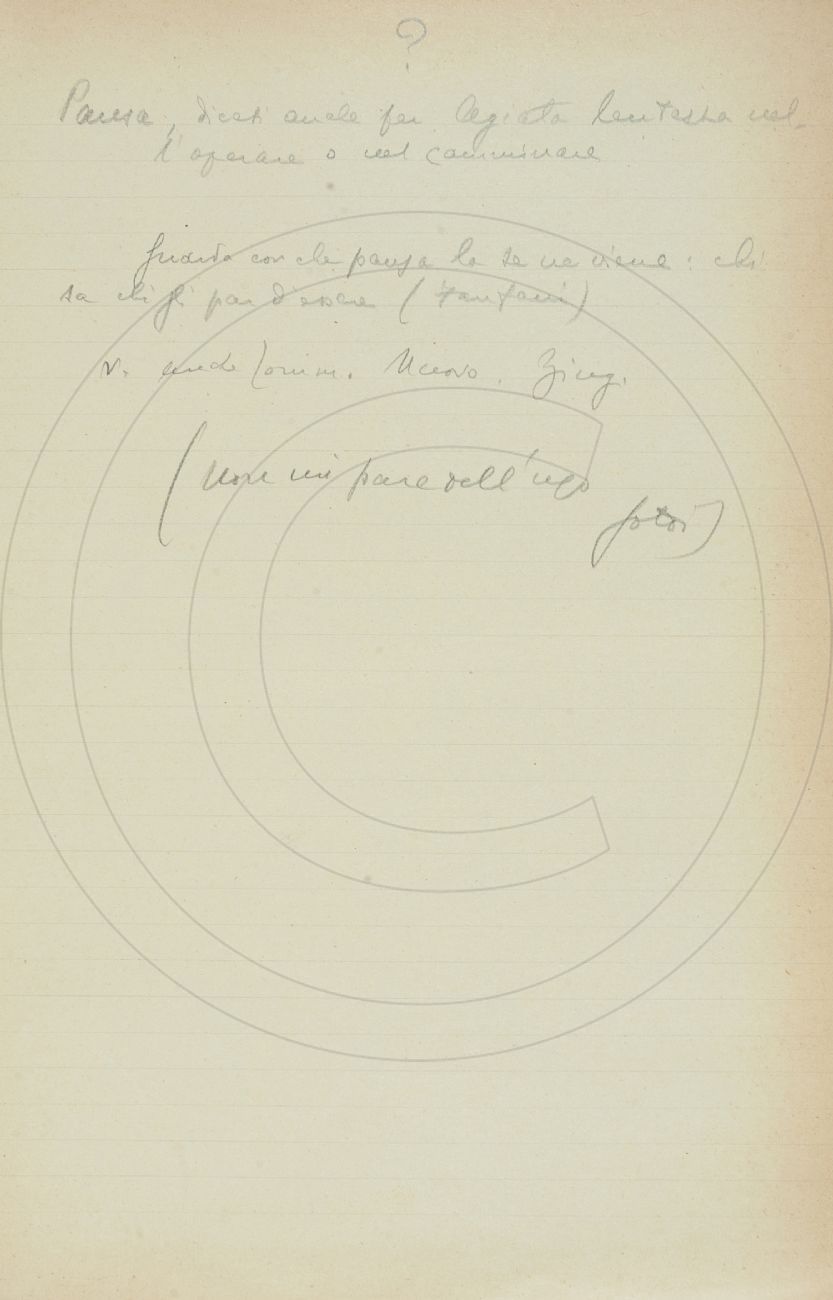 ?
Pausa, dicesi anche per Agiata lentezza nel-
l'operare o nel camminare
Guarda con che pausa la se ne viene: chi
sa chi gli par d'essere (Fanfani)
v. anche Comm. Nuovo. Zing.
(Non mi pare dell'uso